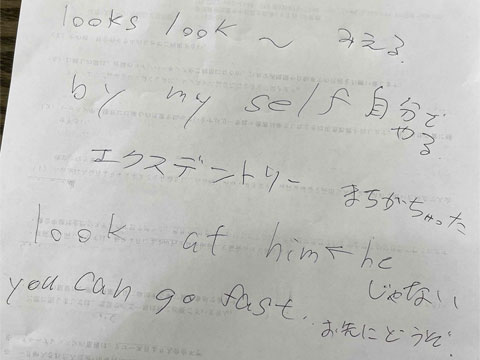 looks look ～ みえる.
by my self 自分で
やる
エクスデントリー まちがちゃった
look at him ← he
じゃない
you can go fast. お先にどうぞ